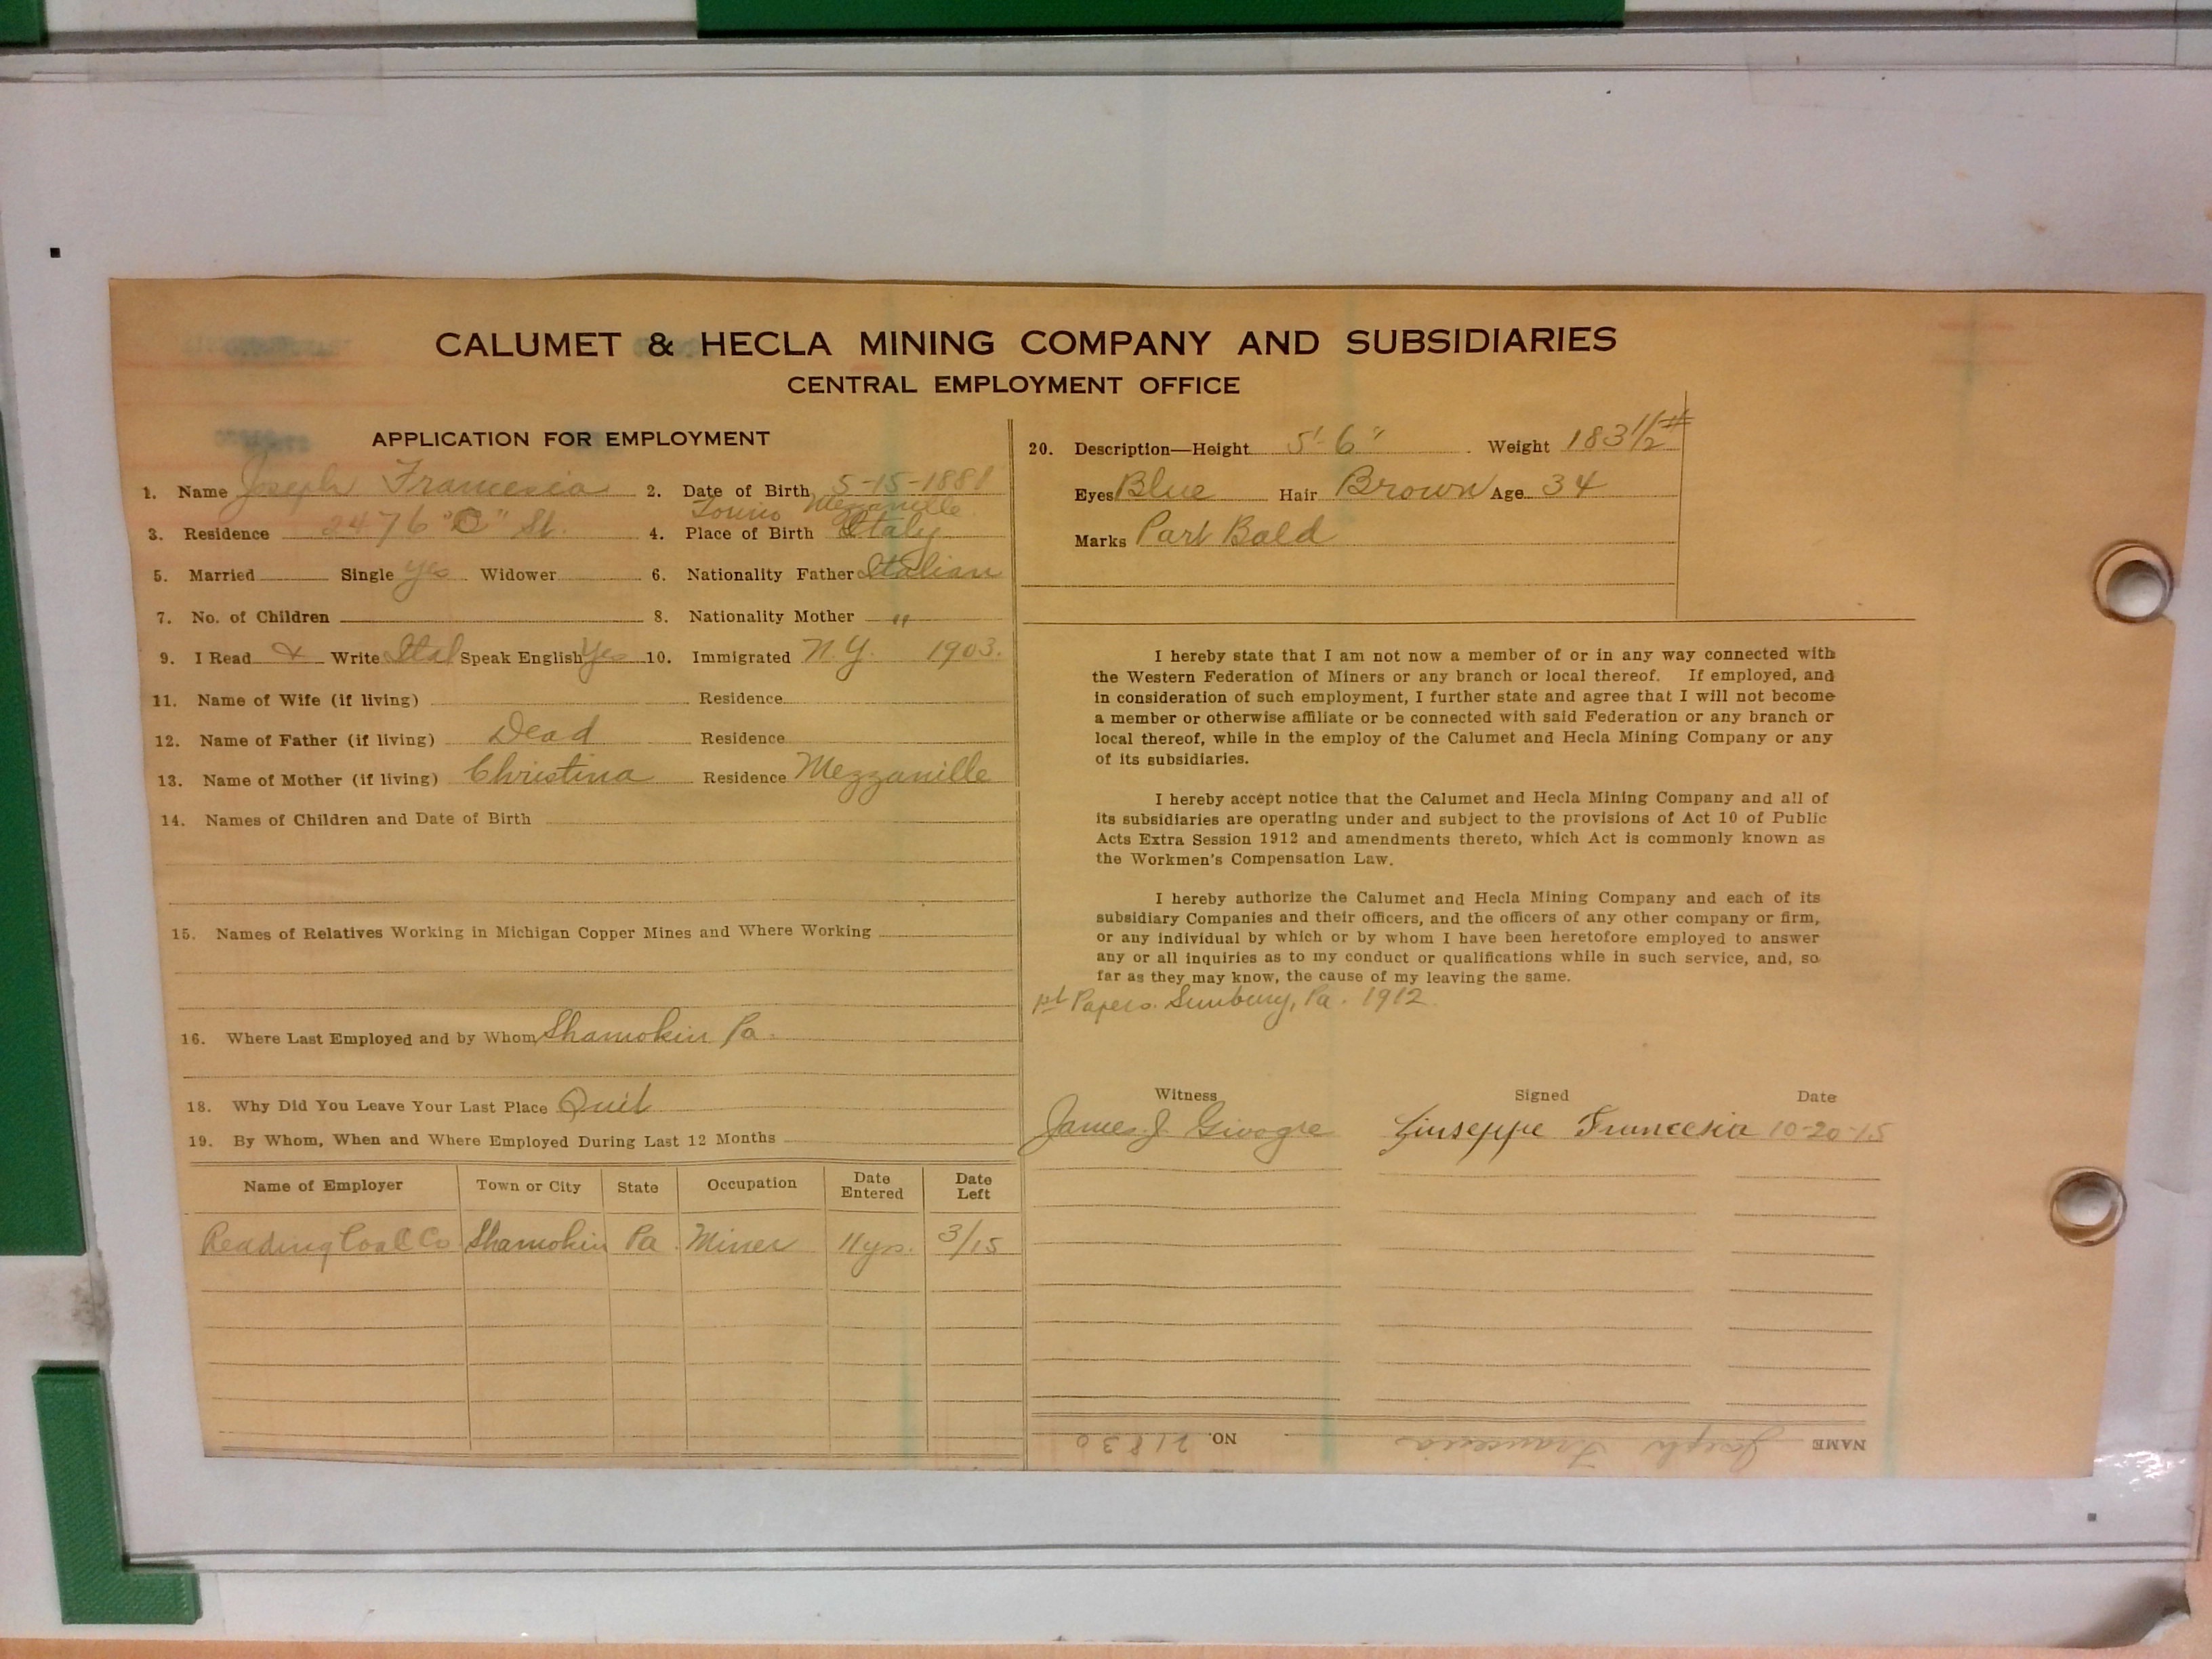 CALUMET & HECLA MINING COMPANY AND SUBSIDIARIES
CENTRAL EMPLOYMENT OFFICE
APPLICATION FOR EMPLOYMENT
1. Name Joseph Francesia 2. Date of Birth 5-15-1881
Torino Mezzanille
3. Residence 2476 "C" St. 4. Place of Birth Italy
5. Married Single yes Widower 6. Nationality Father Italian
7. No. of Children 8. Nationality Mother "
9. I Read & Write Ital Speak English Yes 10. Immigrated N.Y. 1903.
11. Name of Wife (if living) Residence
12. Name of Father (if living) Dead Residence
13. Name of Mother (if living) Christina Residence Mezzanille
14. Names of Children and Date of Birth
15. Names of Relatives Working in Michigan Copper Mines and Where Working
16. Where Last Employed and by Whom Shamokin Pa.
18. Why Did You Leave Your Last Place Quit
19. By Whom, When and Where Employed During Last 12 Months
Name of Employer Town or City State Occupation Date Entered Date Left
Reading Coal Co Shamokin Pa. Miner 11 yrs. 3/15
20. Description—Height 5'-6" Weight 183 1/2 #
Eyes Blue Hair Brown Age 34
Marks Part Bald
I hereby state that I am not now a member of or in any way connected with
the Western Federation of Miners or any branch or local thereof. If employed, and
in consideration of such employment, I further state and agree that I will not become
a member or otherwise affiliate or be connected with said Federation or any branch or
local thereof, while in the employ of the Calumet and Hecla Mining Company or any
of its subsidiaries.
I hereby accept notice that the Calumet and Hecla Mining Company and all of
its subsidiaries are operating under and subject to the provisions of Act 10 of Public
Acts Extra Session 1912 and amendments thereto, which Act is commonly known as
the Workmen's Compensation Law.
I hereby authorize the Calumet and Hecla Mining Company and each of its
subsidiary Companies and their officers, and the officers of any other company or firm,
or any individual by which or by whom I have been heretofore employed to answer
any or all inquiries as to my conduct or qualifications while in such service, and, so
far as they may know, the cause of my leaving the same.
1st Papers. Sunbury, Pa. 1912.
Witness Signed Date
James J. Giuseppe Francesia 10-20-15
NAME Joseph Francesia NO. 21830